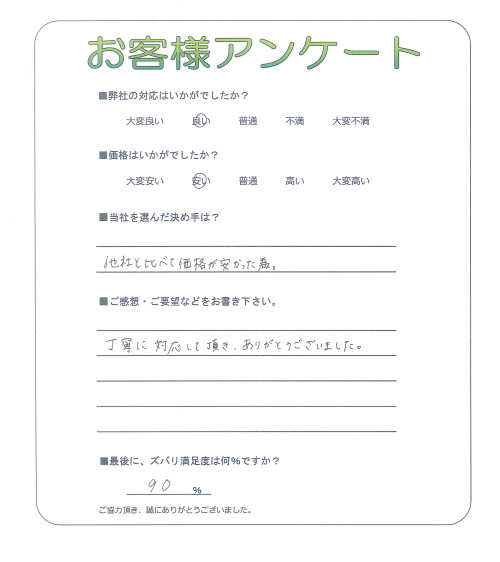 お客様アンケート
■弊社の対応はいかがでしたか？
大変良い 良い 普通 不満 大変不満
■価格はいかがでしたか？
大変安い 安い 普通 高い 大変高い
■当社を選んだ決め手は？
他社と比べて価格が安かった為。
■ご感想・ご要望などをお書き下さい。
丁寧に対応して頂き、ありがとうございました。
■最後に、ズバリ満足度は何%ですか？
90 %
ご協力頂き、誠にありがとうございました。